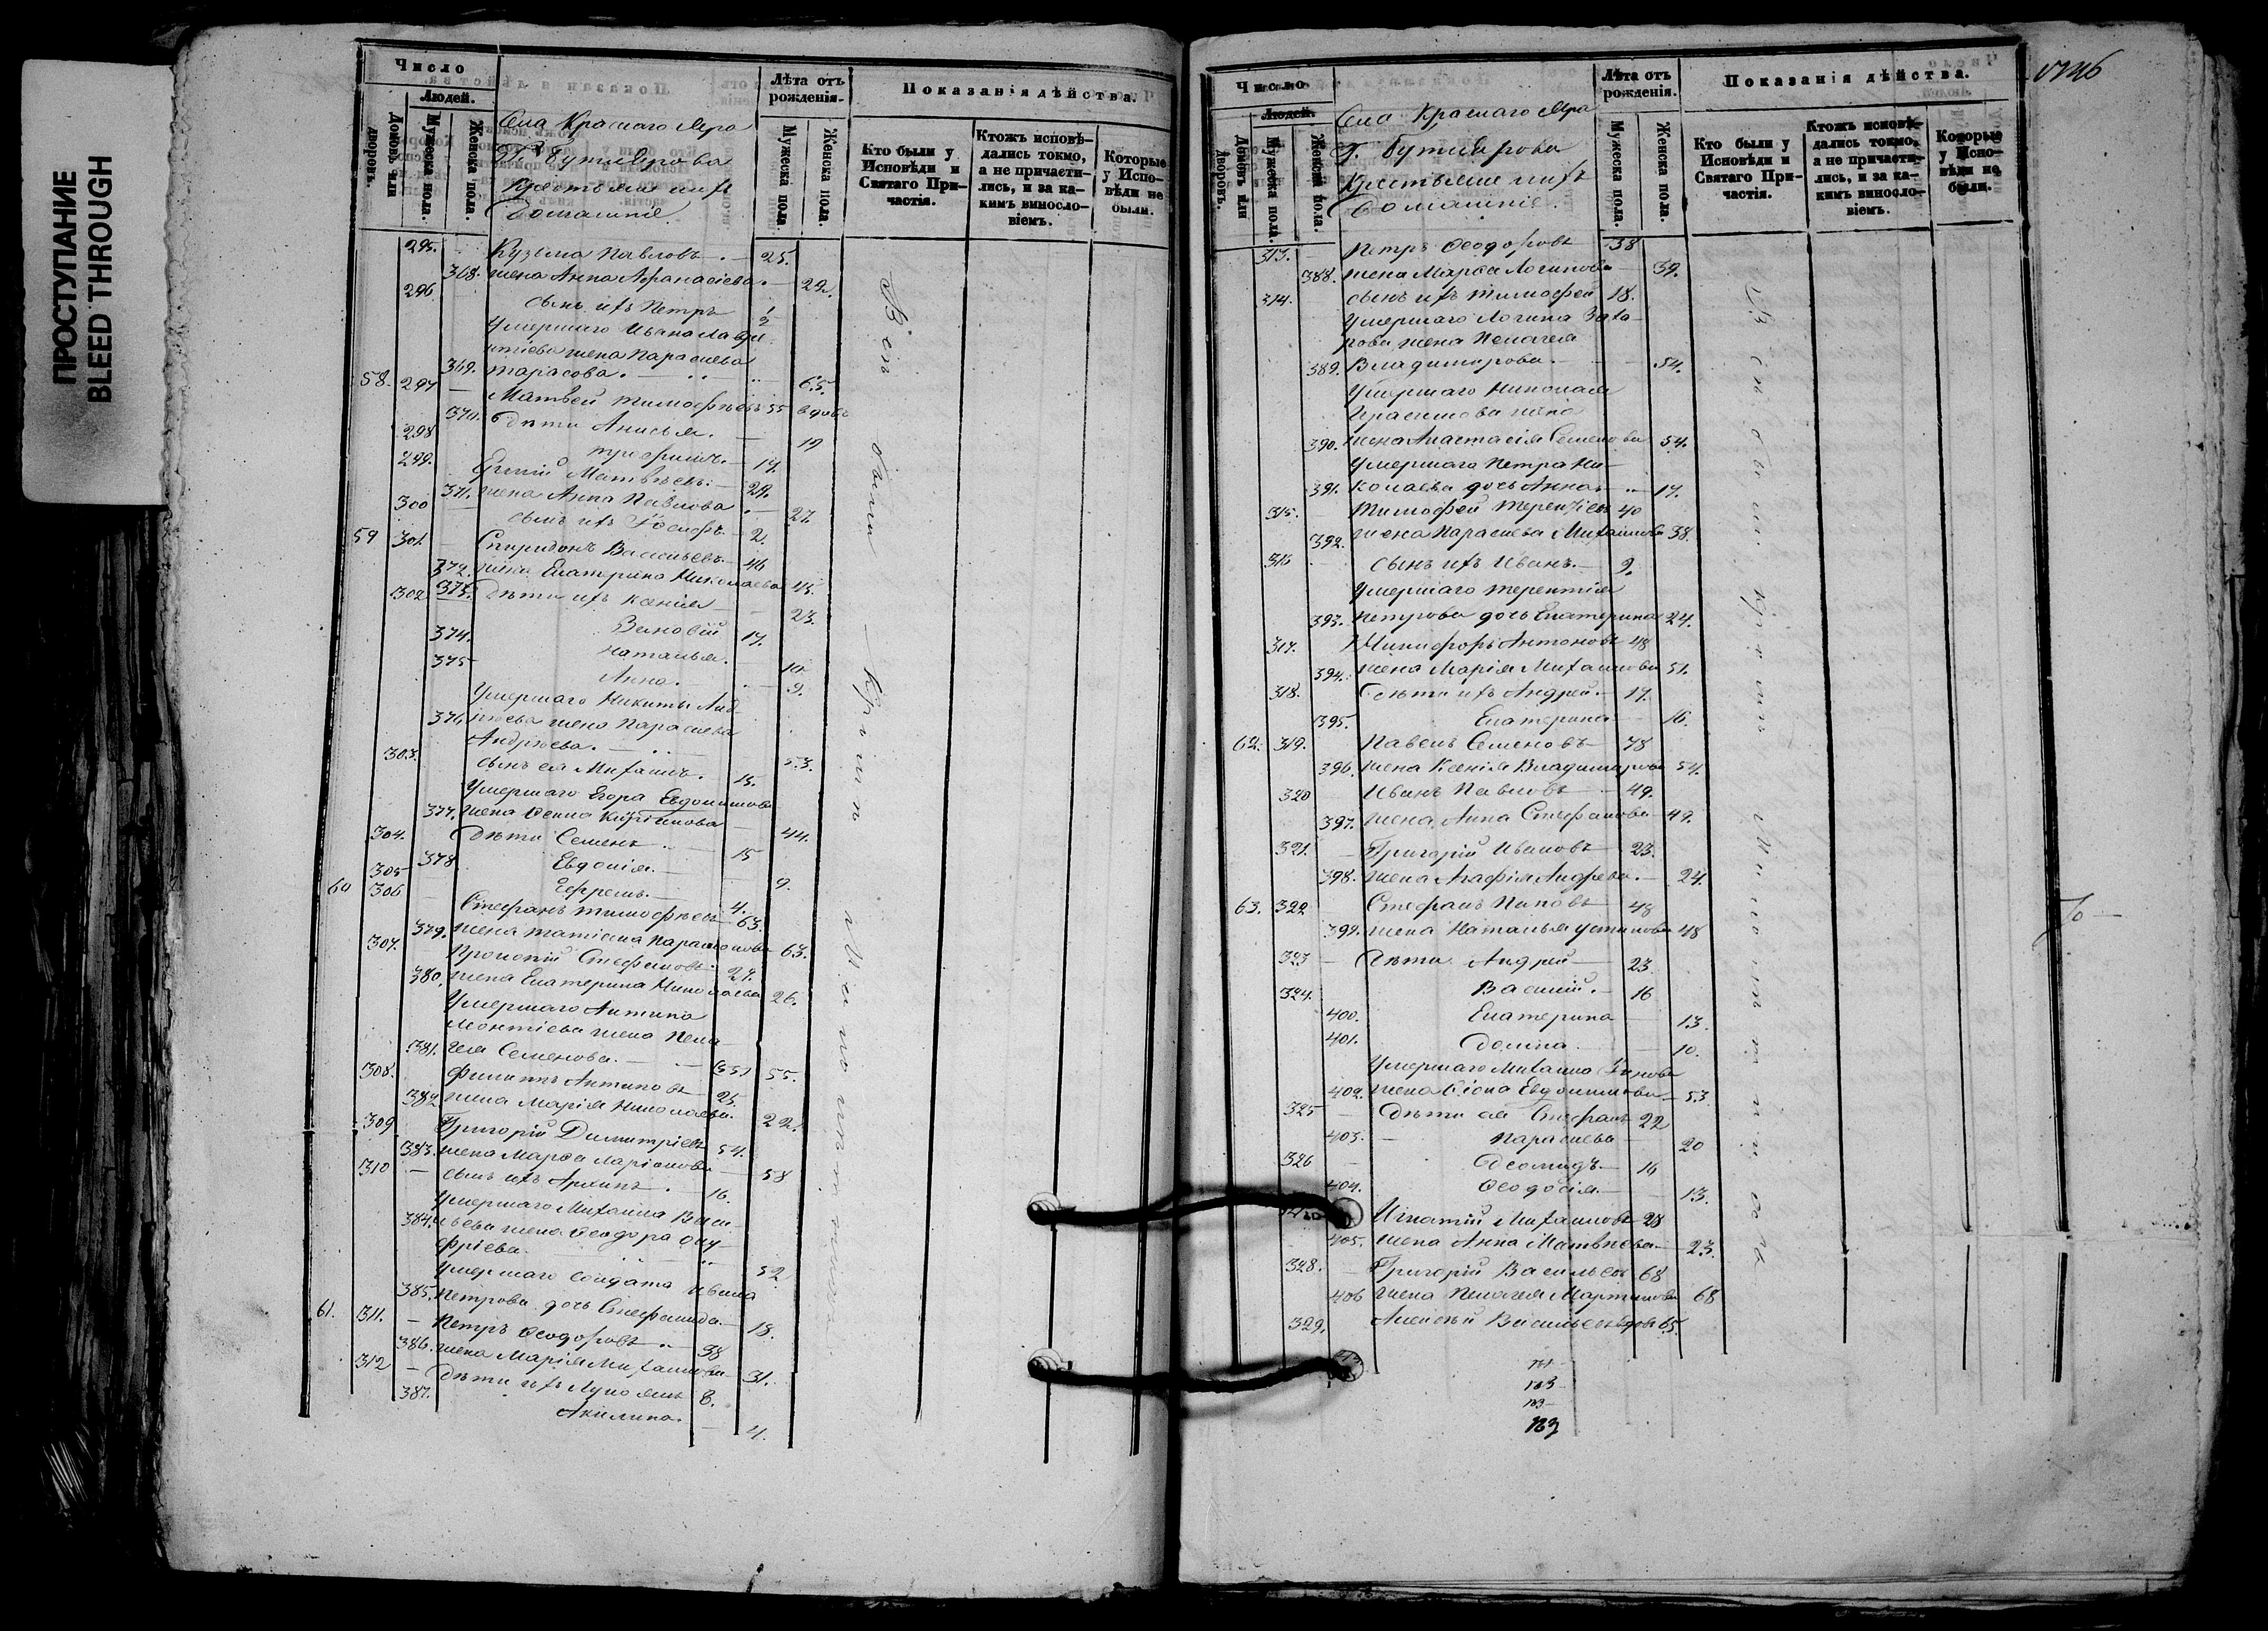 ПРОСТУПАНИЕ
BLEED THROUGH
Число
Людей.
Домовъ или дворовъ.
Мужеска пола.
Женска пола.
Села Краснаго Яра
Г. Бутлярова
Крестьяне и ихъ
Домашніе.
Лѣта отъ рожденія.
Мужеска пола.
Женска пола.
Показанія дѣйства.
Кто были у Исповѣди и Святаго Причастія.
Ктожъ исповѣдались токмо, а не причастились, и за какимъ винословіемъ.
Которые у Исповѣди не были.
295. Кузьма Павловъ. 25.
368. жена Анна Афанасіева. 22.
296 сынъ ихъ Петръ 1/2
Умершаго Ивана
жена Параскева
369. Тарасова. 65.
58. 297 Матвей Тимофѣевъ 55 вдовъ
370. дѣти Анисья. 19
298 Трофимъ. 14.
299. Матвѣевъ. 29.
371. жена Анна Павлова 27.
300 сынъ ихъ Іосифъ. 2.
59 301. Спиридонъ Васильевъ. 46
372. жена Екатерина Николаева 45.
373. Дѣти ихъ Ксенія 23.
302 Зиновій 17.
374. Наталья. 10
375 Анна. 9.
Умершаго Никиты Анд
376. реева жена Параскева
Андреева. 53.
303. сынъ ея Михаилъ. 15.
Умершаго Егора Евдокимова
377. жена
304. дѣти Семенъ. 15
378. Евдокія. 9.
305 Ефремъ. 4.
60 306 Стефанъ Тимофѣевъ 63.
379. жена Татіана Парамонова 63.
307. Прокопій Стефановъ 27.
380. жена Екатерина Николаева 26.
Умершаго Антипа
Леонтіева жена Пела
381. гея Семенова. 55.
308. Филиппъ Антиповъ 25.
382 жена Марія Николаева. 22.
309 Григорій Димитріевъ 54.
383. жена Марѳа Ларіонова 58
310 сынъ ихъ Архипъ. 16.
Умершаго Михаила Васи
384. льева жена Ѳеодора Ону
фріева. 52
Умершаго солдата Ивана
385. Петрова дочь Стефанида. 18.
61. 311. Петръ Ѳеодоровъ 38
386. жена Марія Михаилова 31.
312 Дѣти ихъ Лукьянъ 8.
387. Акилина. 4.
Всѣ были
Число
Людей.
Домовъ или дворовъ.
Мужеска пола.
Женска пола.
Села Краснаго Яра
Г. Бутлярова
Крестьяне и ихъ
Домашніе.
Лѣта отъ рожденія.
Мужеска пола.
Женска пола.
Показанія дѣйства.
Кто были у Исповѣди и Святаго Причастія.
Ктожъ исповѣдались токмо, а не причастились, и за какимъ винословіемъ.
Которые у Исповѣди не были.
313. Петръ Ѳеодоровъ 38
388. жена Марѳа Логинова 39.
314. сынъ ихъ Тимофей 18.
Умершаго Логина Заха
рова жена Пелагея
389. Владимирова. 54.
Умершаго Николая
Герасимова жена
390. жена Анастасія Семенова 54.
Умершаго Петра Ни
391. колаева дочь Анна. 17.
315. Тимофей Терентіевъ 40
392. жена Параскева Михаилова 38.
316 сынъ ихъ Иванъ. 9.
Умершаго Терентія
393. Петрова дочь Екатерина 24.
317. Никифоръ Антоновъ 48
394. жена Марія Михаилова 51.
318. Дѣти ихъ Андрей. 17.
395. Екатерина 16.
62. 319. Павелъ Семеновъ 78
396. жена Ксенія Владимирова 54.
320 Иванъ Павловъ 49.
397. жена Анна Стефанова 49.
321. Григорій Ивановъ 23.
398. жена Агафія Андреева. 24.
63. 322 Стефанъ 48
399. жена Наталья Устинова 48
323 Дѣти Андрей 23.
324. Василій. 16
400. Екатерина 13.
401. Домна. 10.
Умершаго Михаила
402. жена Евдокимова 53
325 Дѣти ея Стефанъ 22
403. Параскева 20
326 Діомидъ. 16
404. Ѳеодосія. 13.
Игнатій Михаиловъ 28
405. жена Анна Матвѣева 23.
328. Григорій Васильевъ 68
406 жена Пелагея Мартинова 68
329. Алексѣй Васильевъ вдовъ 65.